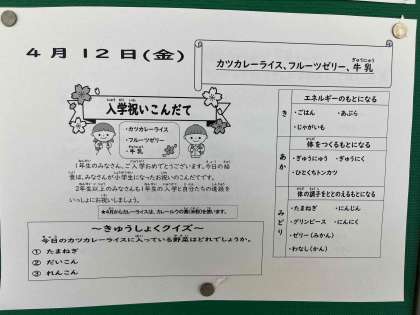 4月12日(金)
カツカレーライス、フルーツゼリー、牛乳
ぎゅうにゅう
入学祝いこんだて
・カツカレーライス
・フルーツゼリー
・牛乳
1年生のみなさん、ご入学おめでとうございます。今日の給
食は、みなさんが小学生になったお祝いのこんだてです。
2年生以上のみなさんも1年生の入学と自分たちの進級を
いっしょにお祝いしましょう。
★4月からカレーライスは、カレールウの素(米粉)を使います。
～きゅうしょくクイズ～
今日のカツカレーライスに入っている野菜はどれでしょうか。
① たまねぎ
② だいこん
③ れんこん
き
エネルギーのもとになる
・ごはん ・あぶら
・じゃがいも
あか
体をつくるもとになる
・ぎゅうにゅう ・ぎゅうにく
・ひとくちトンカツ
みどり
体の調子をととのえるもとになる
・たまねぎ ・にんじん
・グリンピース ・にんにく
・ゼリー(みかん)
・わなし(かん)